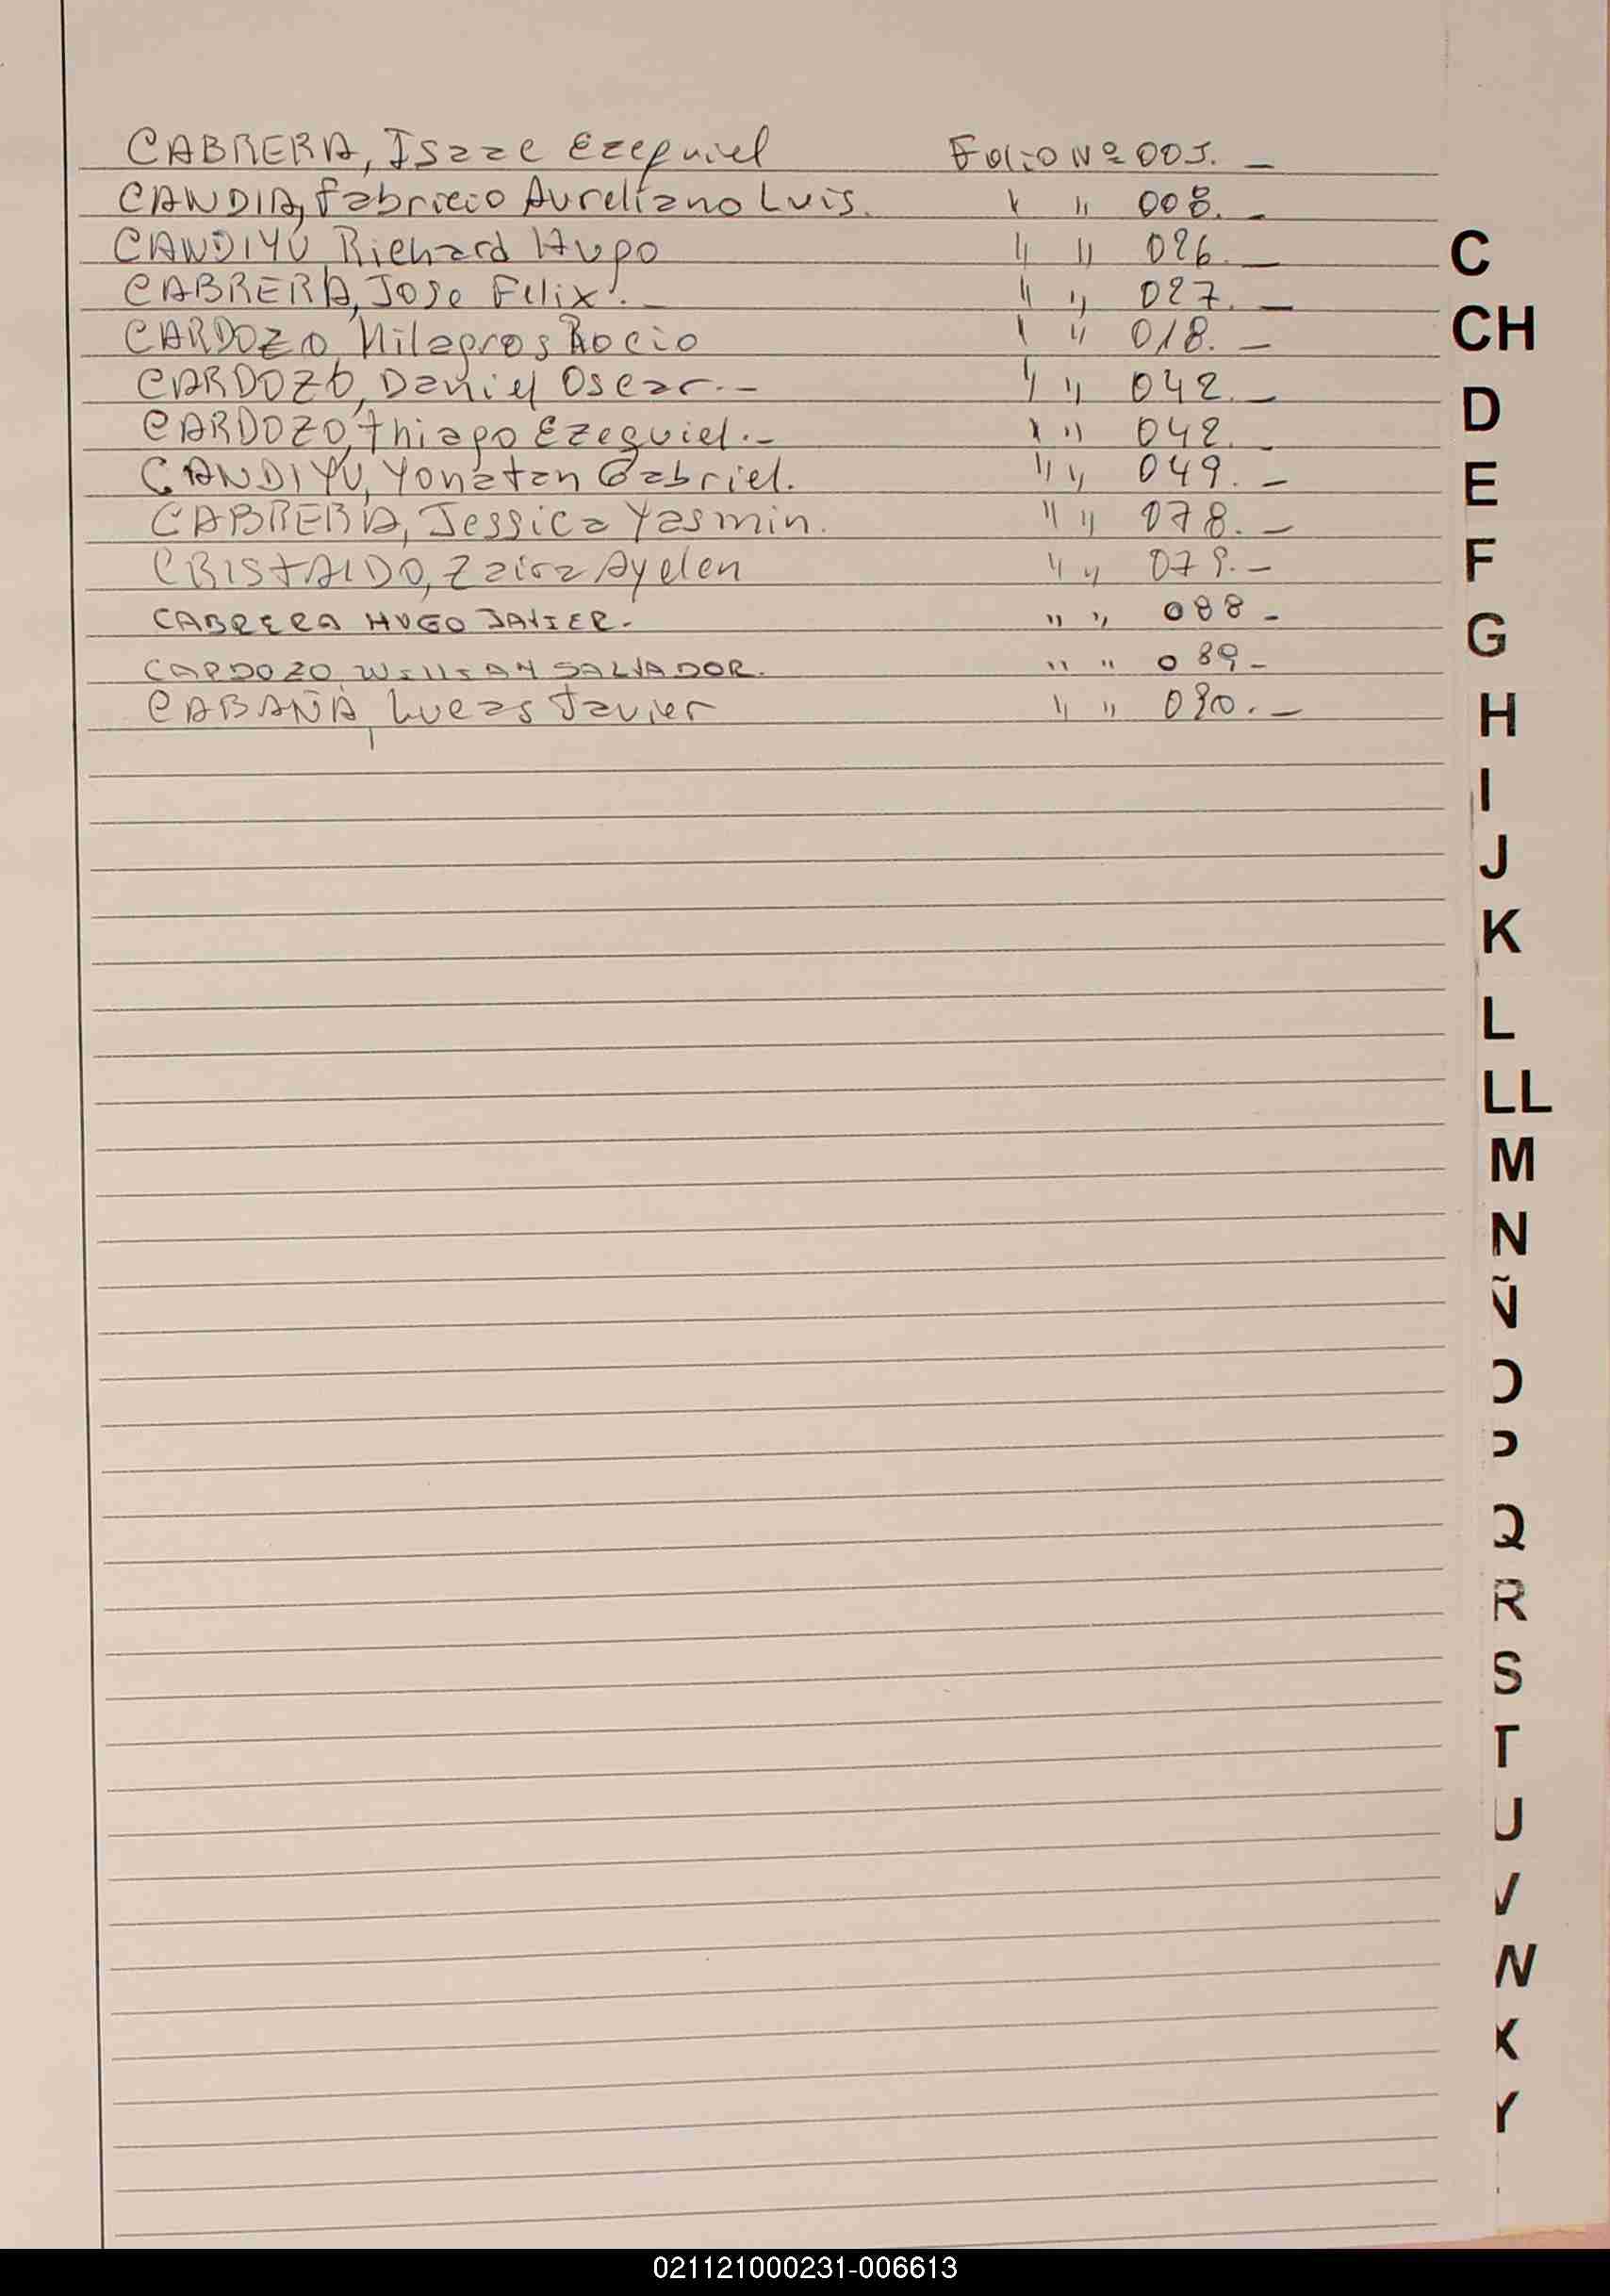 CABRERA, Isaac Ezequiel Folio Nº 005. —
CANDIA, Fabricio Aureliano Luis. " " 008. —
CANDIYÚ, Richard Hugo " " 026. —
CABRERA, Jose Felix. — " " 027. —
CARDOZO, Milagros Rocio " " 018. —
CARDOZO, Daniel Oscar. — " " 042. —
CARDOZO, Thiago Ezequiel. — " " 042. —
CANDIYÚ, Yonatan Gabriel. " " 049. —
CABRERA, Jessica Yasmin. " " 078. —
CRISTALDO, Zaira Ayelen " " 079. —
CABRERA HUGO JAVIER. " " 088 -
CARDOZO, WILLIAM SALVADOR. " " 089 -
CABAÑA, Lucas Javier " " 090. —
C
CH
D
E
F
G
H
I
J
K
L
LL
M
N
Ñ
O
P
Q
R
S
T
U
V
W
X
Y
021121000231-006613